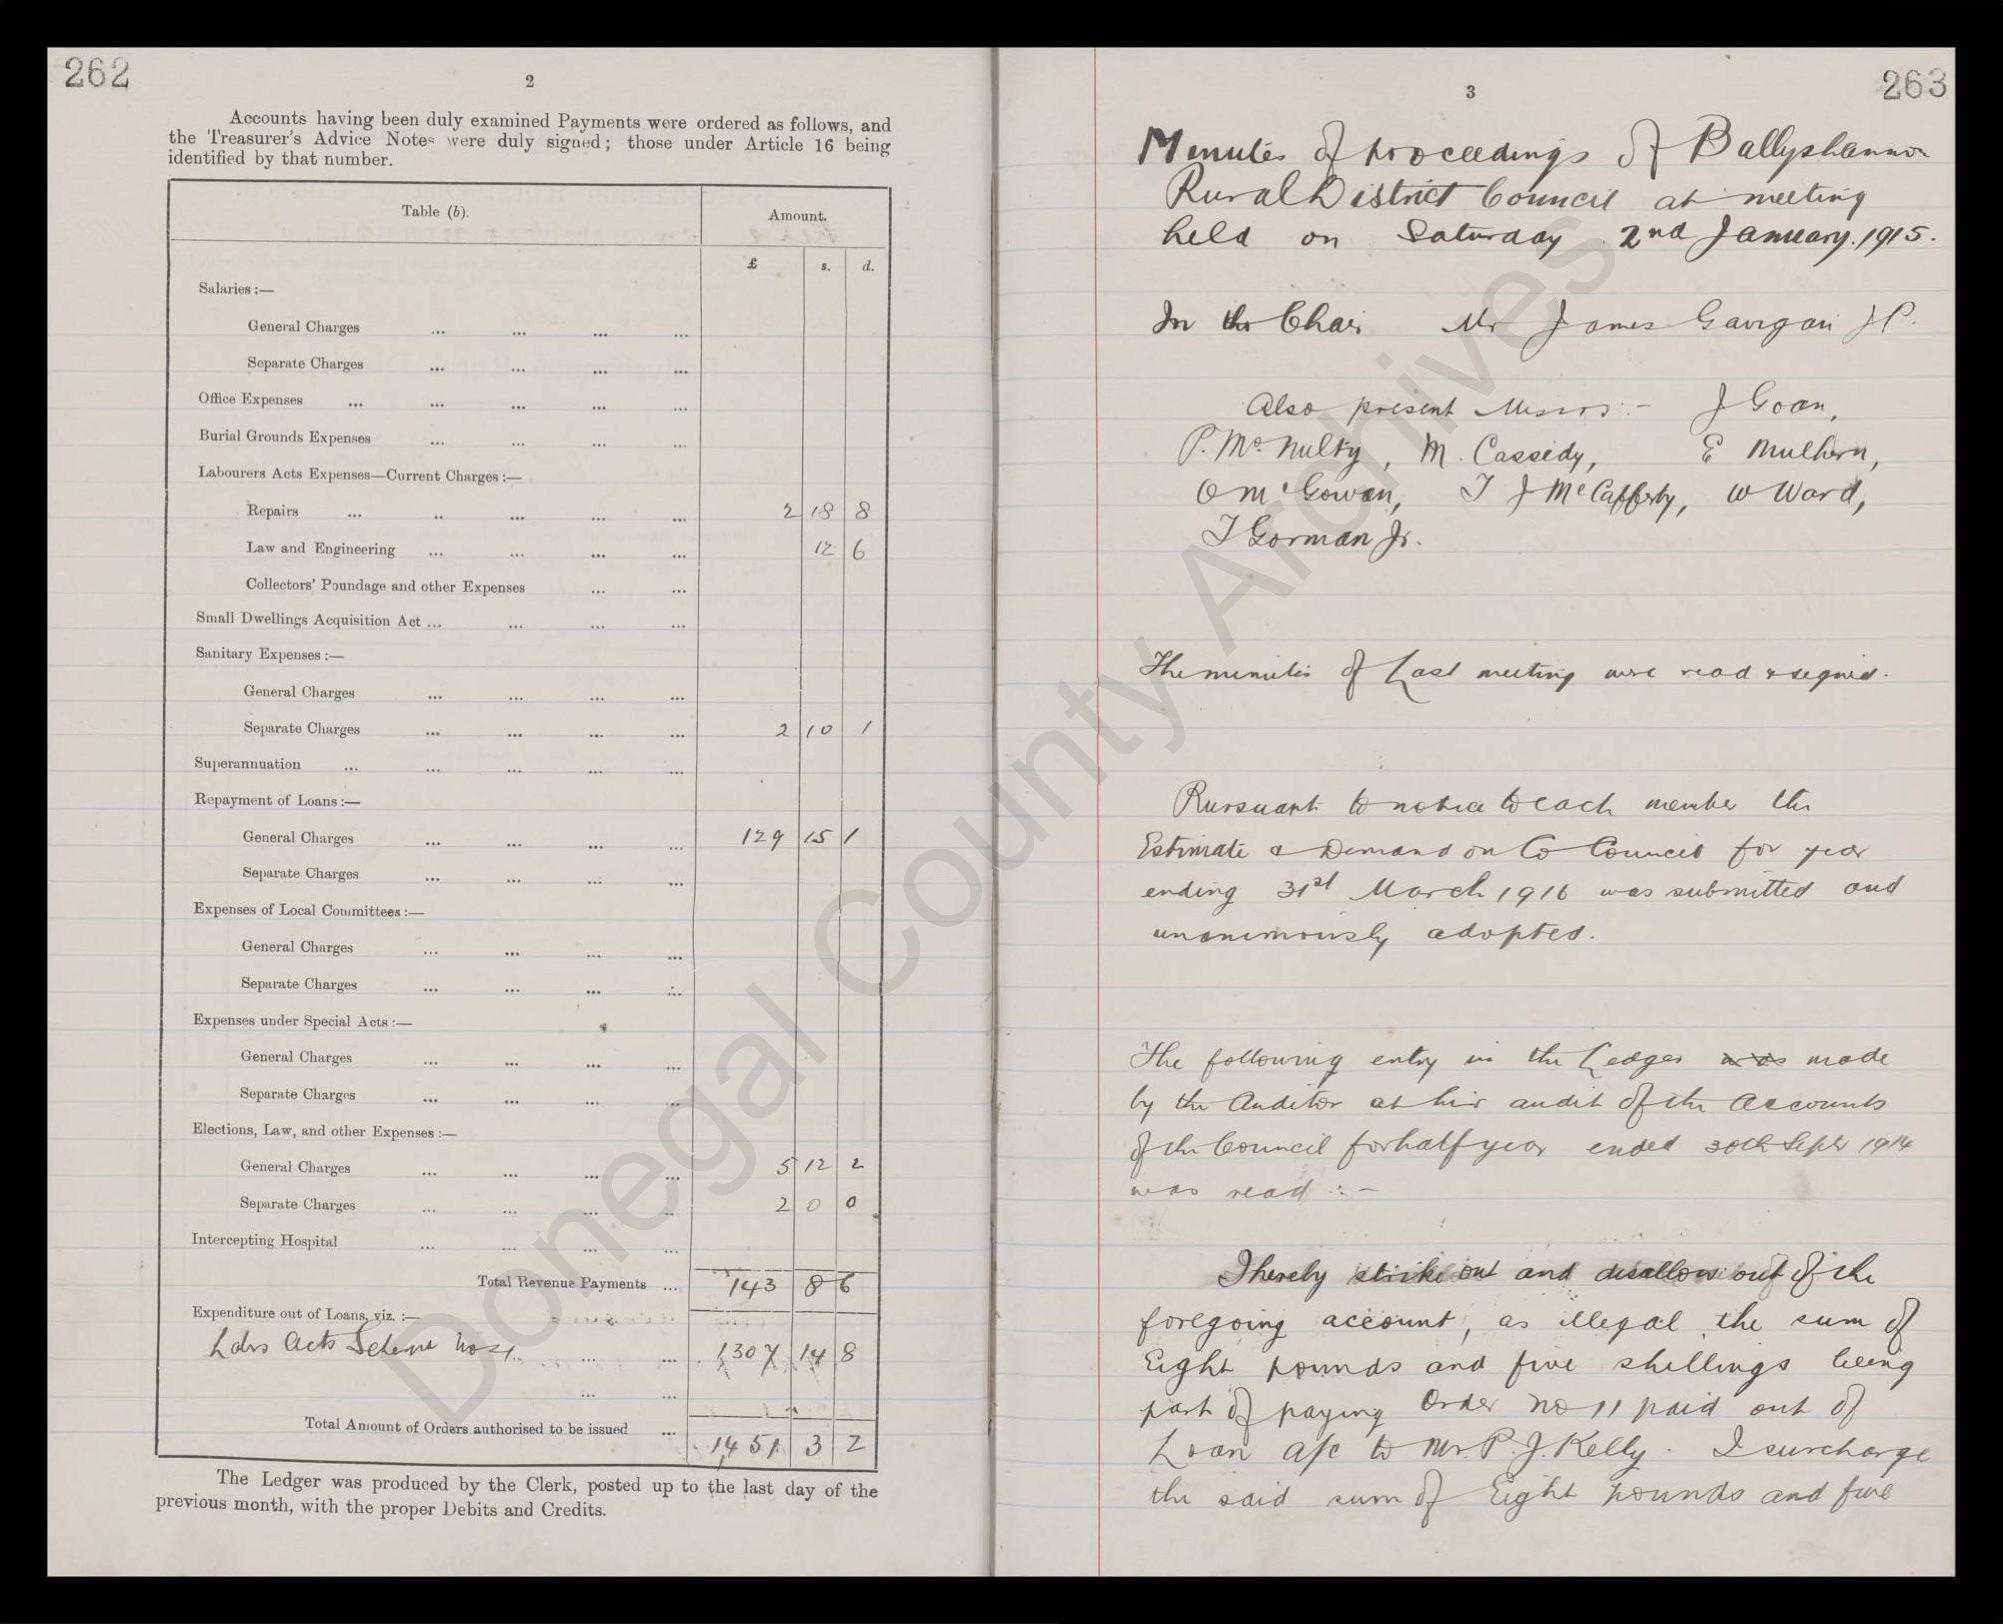 262
2
Accounts having been duly examined Payments were ordered as follows, and
the Treasurer's Advice Notes were duly signed; those under Article 16 being
identified by that number.
Table (b). Amount.
£ s. d.
Salaries :—
General Charges ... ... ... ...
Separate Charges ... ... ... ...
Office Expenses ... ... ... ... ...
Burial Grounds Expenses ... ... ... ...
Labourers Acts Expenses—Current Charges :—
Repairs ... ... ... ... ... 2 18 8
Law and Engineering ... ... ... ... 12 6
Collectors' Poundage and other Expenses ... ...
Small Dwellings Acquisition Act ... ... ... ...
Sanitary Expenses :—
General Charges ... ... ... ...
Separate Charges ... ... ... ... 2 10 1
Superannuation ... ... ... ... ...
Repayment of Loans :—
General Charges ... ... ... ... 129 15 1
Separate Charges ... ... ... ...
Expenses of Local Committees :—
General Charges ... ... ... ...
Separate Charges ... ... ... ...
Expenses under Special Acts :—
General Charges ... ... ... ...
Separate Charges ... ... ... ...
Elections, Law, and other Expenses :—
General Charges ... ... ... ... 5 12 2
Separate Charges ... ... ... ... 2 0 0
Intercepting Hospital ... ... ... ...
Total Revenue Payments ... 143 8 6
Expenditure out of Loans, viz. :—
Labrs Acts Scheme No ... ... 1307 14 8
... ...
Total Amount of Orders authorised to be issued ... 1451 3 2
The Ledger was produced by the Clerk, posted up to the last day of the
previous month, with the proper Debits and Credits.
263
3
Minutes of proceedings of Ballyshannon
Rural District Council at meeting
held on Saturday 2nd January. 1915.
In the Chair Mr James Gavigan J.P.
Also present Messrs :- J Goan,
P. McNulty, M. Cassidy, E Mulhern,
O McGowan, T J McCafferty, W Ward,
T Gorman Jr.
The minutes of Last meeting were read & signed.
Pursuant to notice to each member the
Estimate & Demand on Co Council for year
ending 31st March 1916 was submitted and
unanimously adopted.
The following entry in the Ledger was made
by the Auditor at his audit of the accounts
of the Council for half year ended 30th Septr 1914
was read :-
I hereby strike out and disallow out of the
foregoing account, as illegal the sum of
Eight pounds and five shillings being
part of paying Order No 11 paid out of
Loan a/c to Mr. P. J. Kelly. I surcharge
the said sum of Eight pounds and five
Donegal County Archives